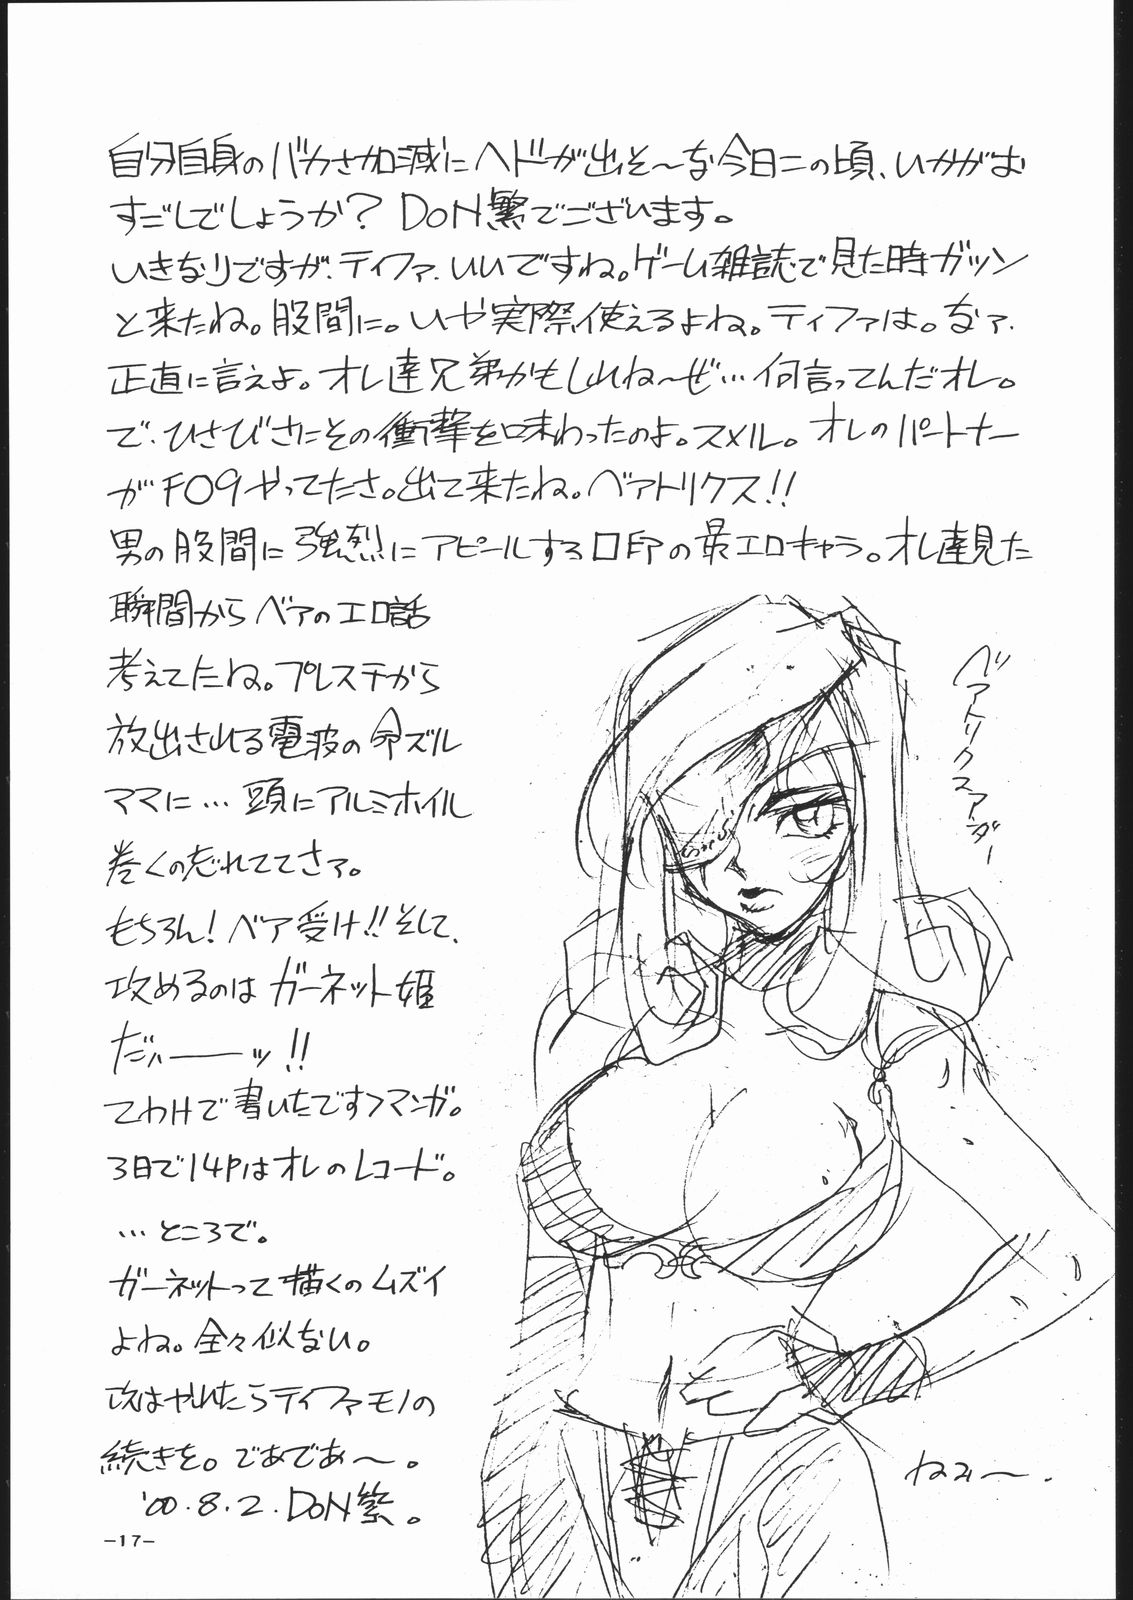 自分自身のバカさ加減にヘドが出そ〜な今日この頃、いかがお
すごしでしょうか？DoN繁でございます。
いきなりですが、ティファ、いいですね。ゲーム雑誌で見た時ガツン
と来たね。股間に。いや実際、使えるよね。ティファは。なァ、
正直に言えよ。オレ達兄弟かもしれね〜ぜ…何言ってんだオレ。
で、ひさびさにその衝撃を味わったのよ。スメル。オレのパートナー
がFO9やってたさ。出て来たね。ベアトリクス!!
男の股間に強烈にアピールする口印の最エロキャラ。オレ達見た
瞬間からベアのエロ話
考えてたね。プレステから
放出される電波の命ズル
ママに…頭にアルミホイル
巻くの忘れててさァ。
もちろん！ベア受け!!そして、
攻めるのはガーネット姫
だィーッ!!
てわけで書いたですフマンガ。
3日で14Pはオレのレコード。
…ところで。
ガーネットって描くのムズイ
よね。全々似ない。
次はやれたらティファモノの
続きを。であであ〜。
'00.8.2.DoN繁。
-17-
ベアトリクスアダー
ねみ〜.